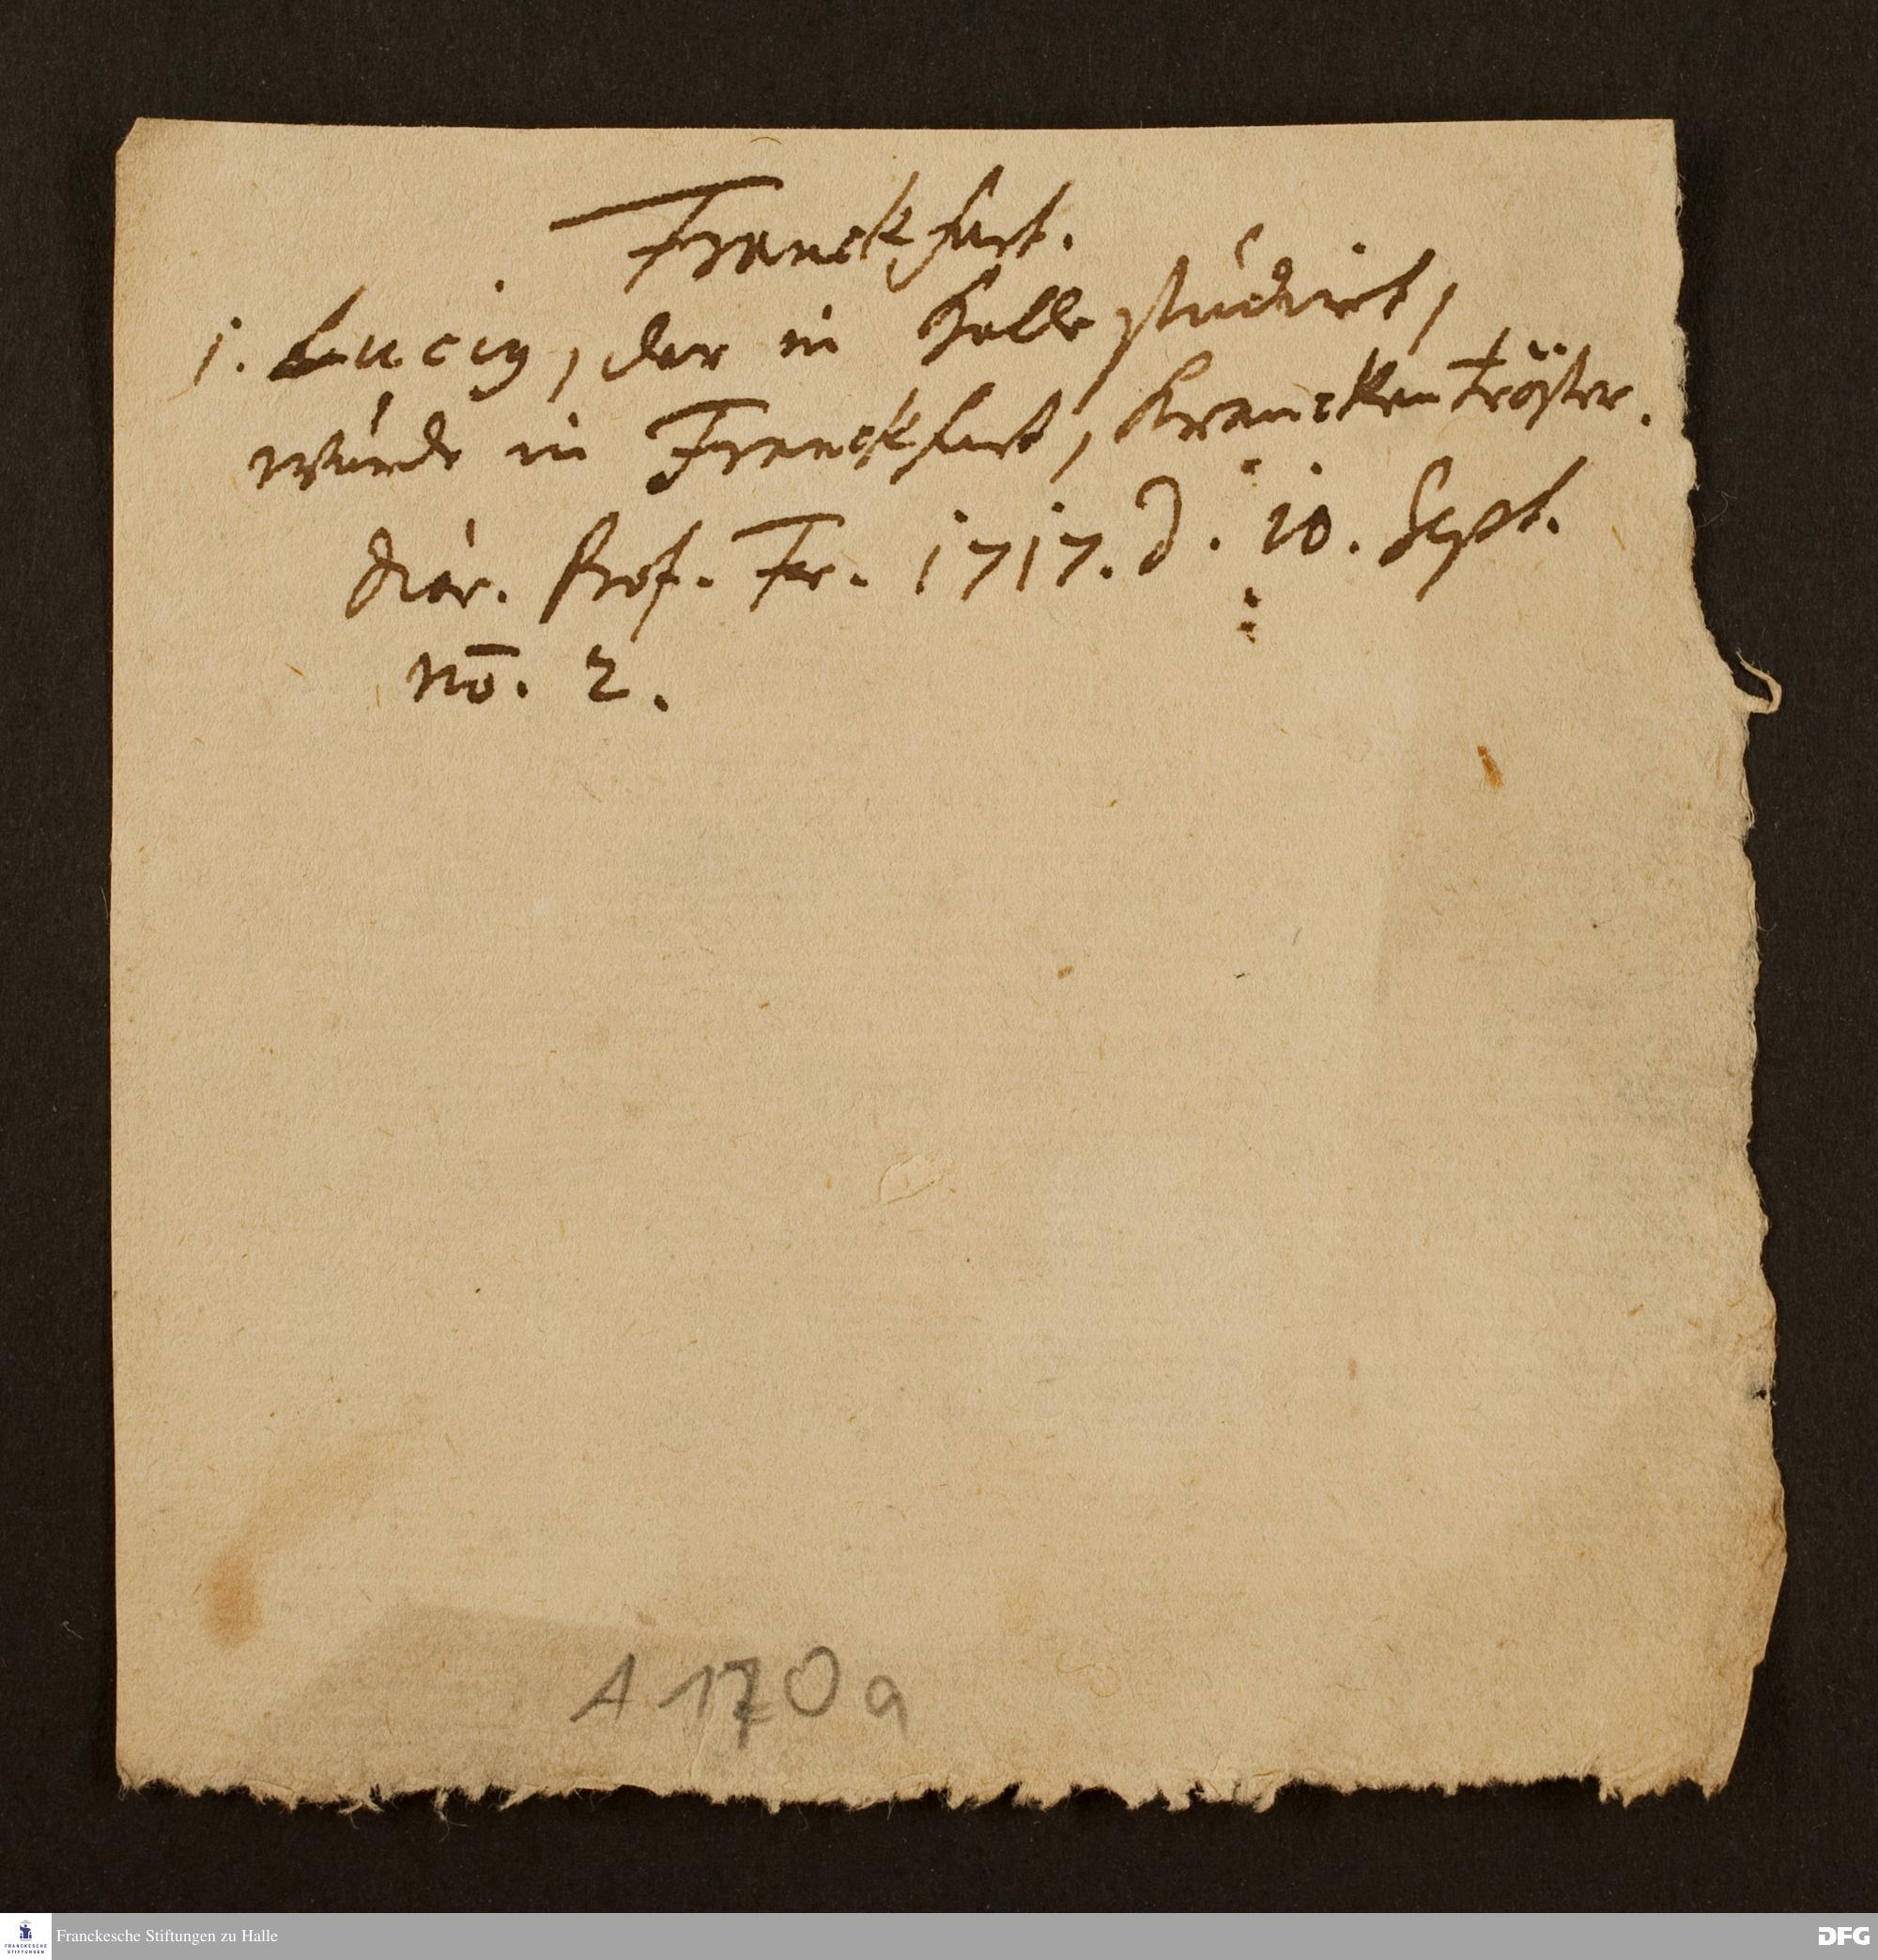 Franckfurt.
1. Lucius, der in Halle studiert,
wurde in Franckfurt, KranckenTröster.
Diar. Prof. Fr. 1717. d. 10. Sept.
no. 2.
A 170 a
FRANCKESCHE
STIFTUNGEN
Franckesche Stiftungen zu Halle
DFG